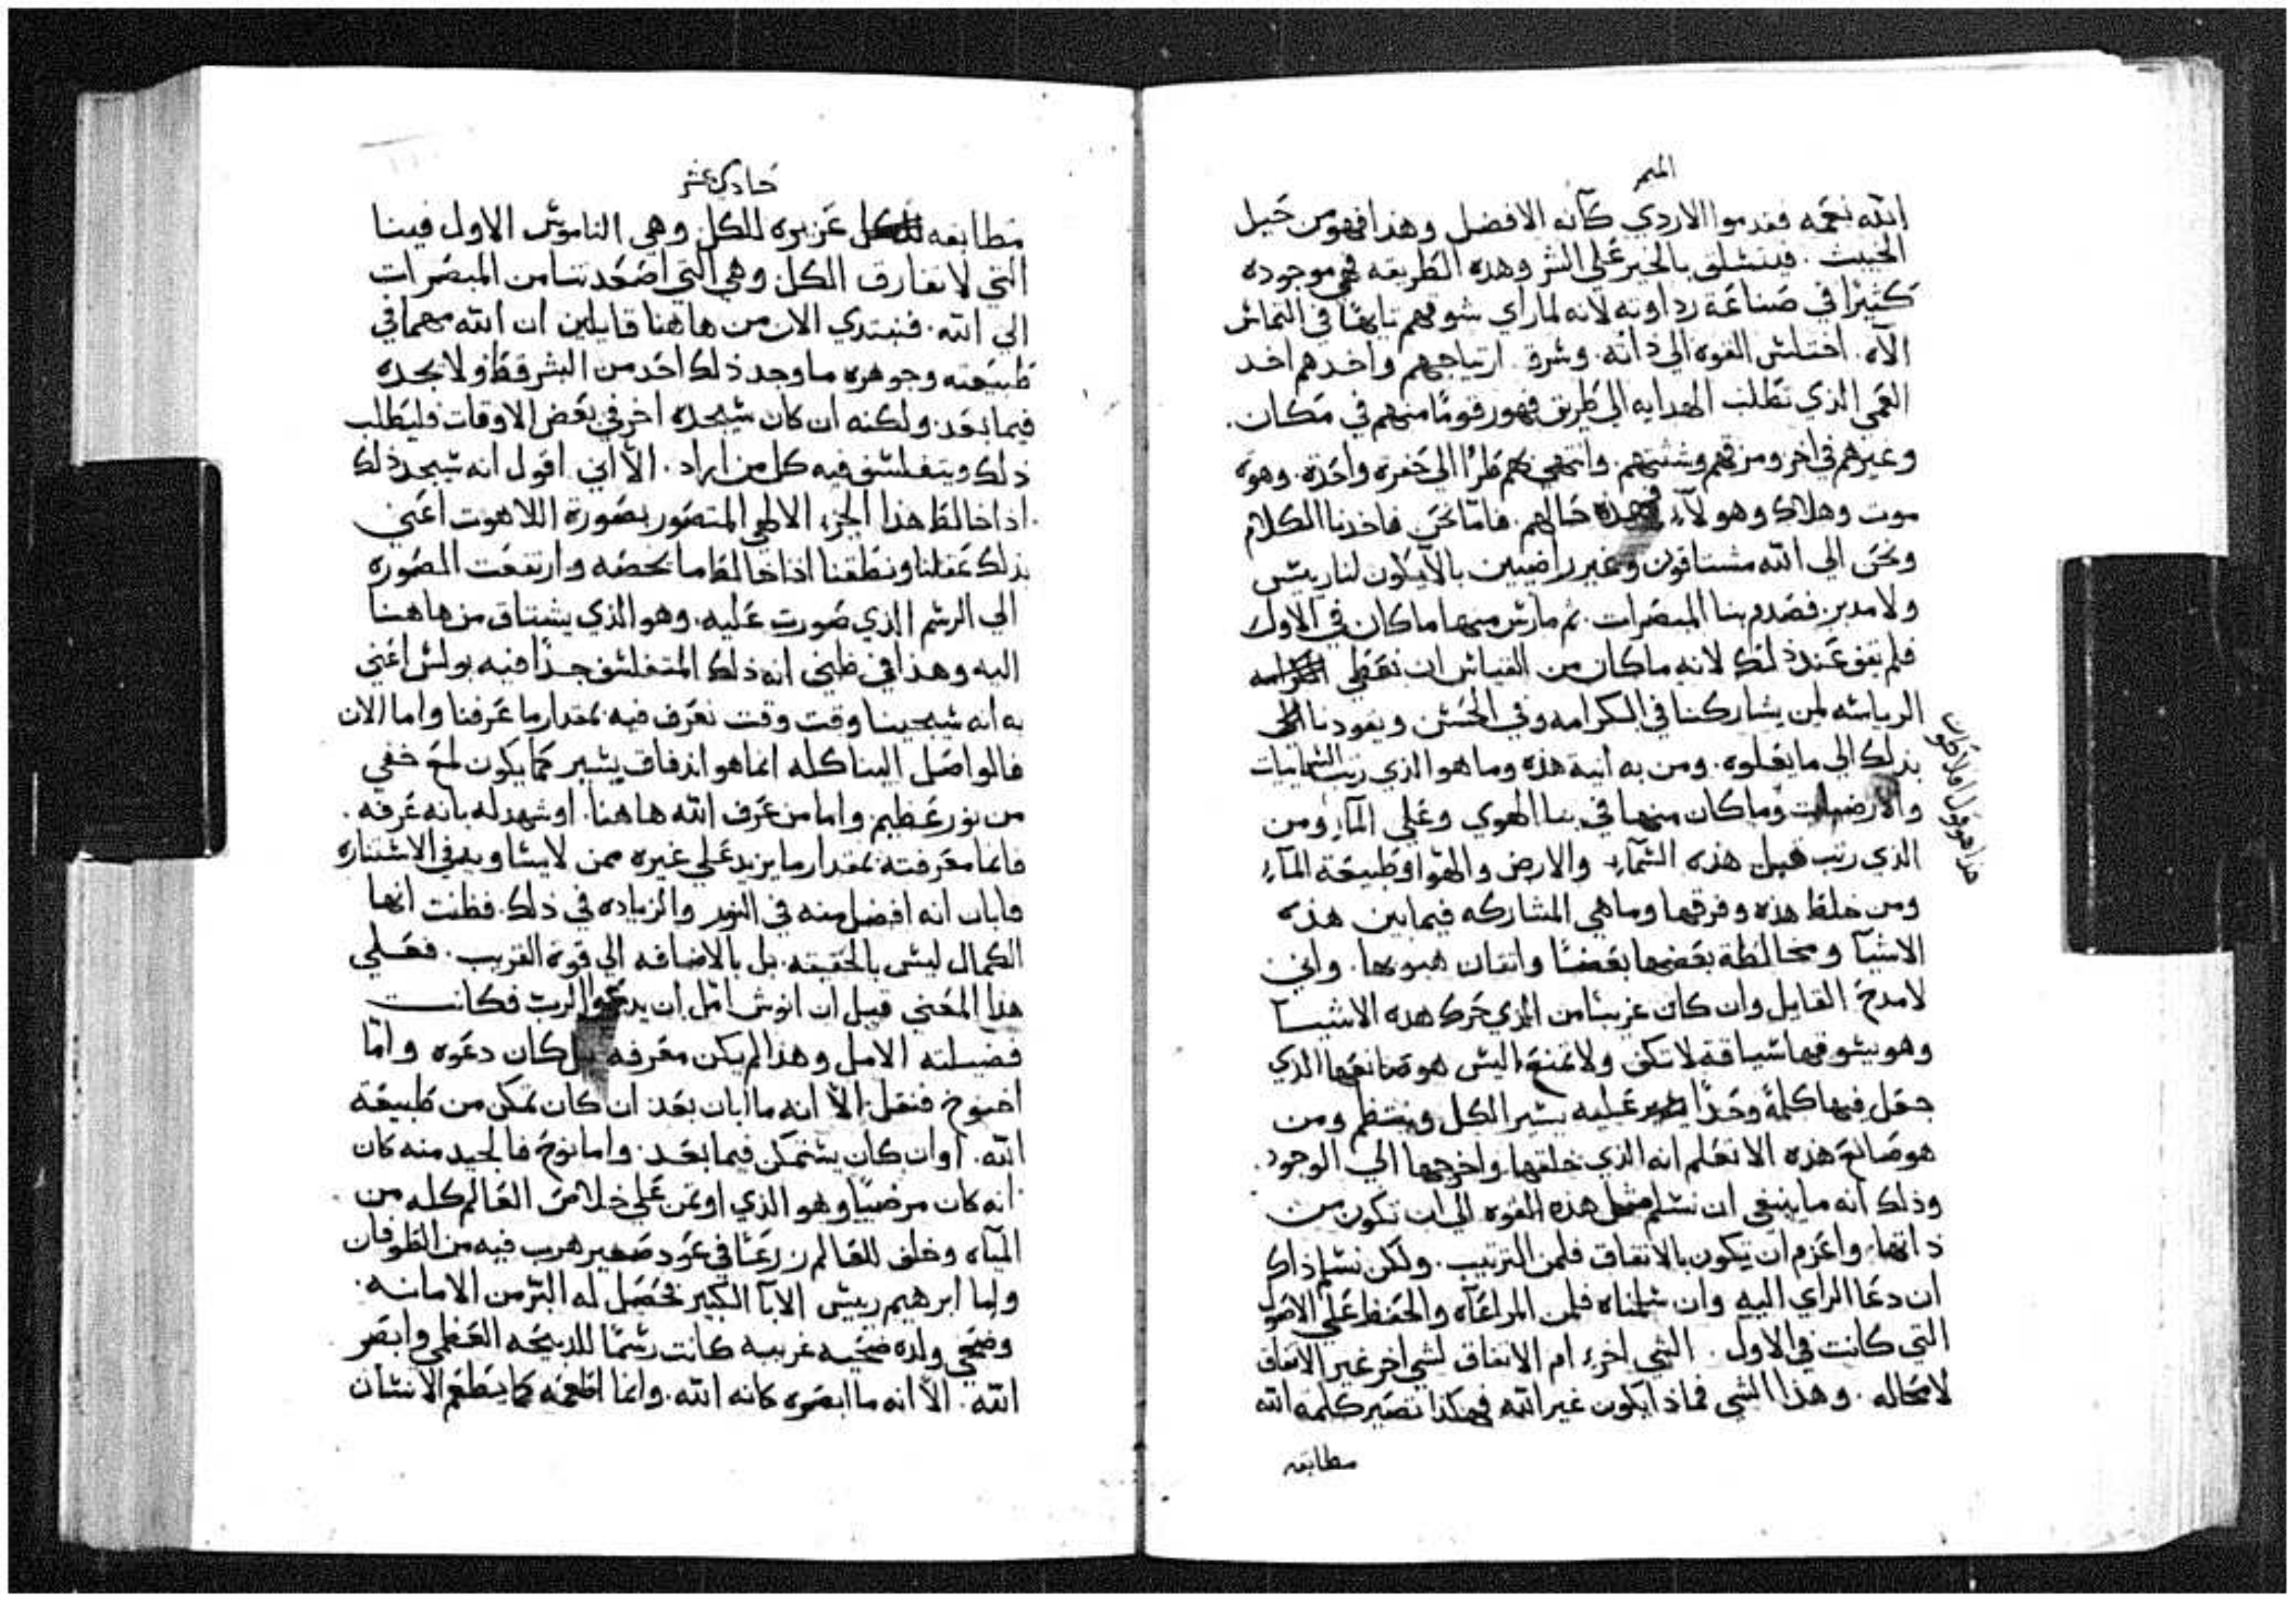 الميمر
الله نعمه فقدموا الاردي كانه الافضل وهذا فهو من حيل
الخبيث. فيتسلق بالخير علي الشر وهذه الطريقه فهي موجوده
كثيرًا في صناعة رداوته لانه لما راي شوقهم تايهًا في التماس
الاه. اختلس القوه الي ذاته. وسرق ارتياحهم واخدهم اخد
العمي الذي تطلب الهدايه الي طريق فهور قومًا منهم في مكان.
وغيرهم في اخر ومزقهم وشتتهم. وانتهي بهم طرًا الي حفرة واحدة. وهوة
موت وهلاك وهولآء فهذه حالهم. فامّا نحن فاخدنا الكلام
ونحن الي الله مشتاقون وغير راضيين بالا يكون لنا رييس
ولا مدبر. فصدم بنا المبصرات. ثم مارس منها ما كان في الاول
فلم نقف عند ذلك لانه ما كان من القياس ان نعطي
الرياسه لمن يشاركنا في الكرامه وفي الحسن ويقودنا
بذلك الي ما يعلوه. ومن به انية هذه وما هو الذي رتب السمايات
والارضيات وما كان منها في بنا الهوي وعلي المآء ومن
الذي رتب قبل هذه السمآء والارض والهوا وطبيعة المآء
ومن خلط هذه وفرقها وما هي المشاركه فيما بين هذه
الاشيآ ومخالطة بعضها بعضًا واتقان هبوبها. واني
لامدح القايل وان كان غريبًا من الذي حرك هده الاشيا
وهو يسوقها سياقة لا تكف ولا تمنع اليس هو صانعها الذي
جعل فيها كلمةً وحدًا عليه يسير الكل وينتظم ومن
هو صانع هذه الا تعلم انه الذي خلقها واخرجها الي الوجود.
وذلك انه ما ينبغي ان نسلم مثل هده القوه الي ان تكون من
ذاتها واعزم ان تكون بالاتفاق فلمن الترتيب. ولكن نسلم ذاك
ان دعا الراي اليه وان سلمناه فلمن المراعآه والحفظ علي الاصول
التي كانت في الاول. الشي اخرء ام الاتفاق لشي اخر غير الاتفاق
لا محاله. وهذا الشي فماذا يكون غير الله فهكذا تصير كلمة الله
مطابقه
هذا هو قول افلاطون
حادي عشر
مطابقه للكل غزيره للكل وهي الناموس الاول فينا
التي لا تفارق الكل وهي التي اصعدتنا من المبصرات
الي الله. فنبتدي الان من هاهنا قايلين ان الله مهما في
طبيعته وجوهره ما وجد ذلك احد من البشر قط ولا يجده
فيما بعد. ولكنه ان كان سيجده اخر في بعض الاوقات فليطلب
ذلك ويتفلسف فيه كل من اراد. الا اني اقول انه سيجد ذلك
اذا خالط هذا الجزء الالهي المتصور بصورة اللاهوت اعني
بذلك عقلنا ونطقنا اذا خالط ما يخصه وارتفعت الصوره
الي الرسم الذي صورت عليه. وهو الذي يشتاق من هاهنا
اليه وهذا في ظني انه ذلك المتفلسف جدًا فيه بولس اعني
به انه سيجينا وقت وقت نعرف فيه بمقدار ما عرفنا واما الان
فالواصل الينا كله انما هو اندفاق يسير كما يكون لمع خفي
من نور عظيم واما من عرف الله هاهنا. او شهد له بانه عرفه.
فانما معرفته بمقدار ما يزيد علي غيره ممن لا يساويه في الاستناره
فابان انه افضل منه في النور والزياده في ذلك. فظنت انها
الكمال ليس بالحقيقه. بل بالاضافه الي قوة القريب. فعلي
هذا المعني قيل ان انوش امل ان يدعو الرب فكانت
فضيلته الامل وهذا لم يكن معرفه بل كان دعوه وامّا
اخنوخ فنقل الا انه ما ابان بعد ان كان تمكن من طبيعة
الله. او ان كان يتمكن فيما بعد. واما نوح فالجيد منه كان
انه كان مرضيًا وهو الذي اوتمن علي خلاص العالم كله من
المياه وخلف للعالم زرعًا في عود صغير هرب فيه من الطوفان
واما ابرهيم رييس الابآ الكبير فحصل له البر من الامانه.
وضحي ولده ضحيه غريبه كانت رسمًا للدبيحه العظمي وابصر
الله. الا انه ما ابصره كانه الله. وانما اطعمه كما يطعم الانسان